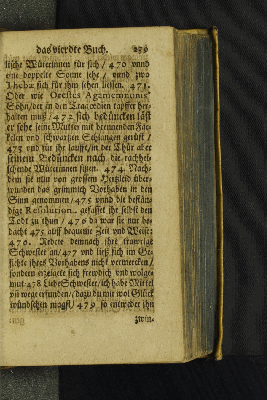 das vierdte Buch. 239
lische Wüterinnen für sich / 470 vnnd
eine doppelte Sonne sehe / vnnd zwo
Thebæ sich für ihm sehen liessen. 471.
Oder wie Orestes Agamemnonis
Sohn / der in den Tragœdien tapffer her-
halten muß / 472 sich bedüncken läst
er sehe seine Mutter mit brennenden Fac-
keln und schwartzen Schlangen gerüst /
473 und für ihr lauffe / in der Thür aber
seinem Bedüncken nach die rachhei-
schende Wüterinnen sitzen. 474. Nach-
dem sie nun von grossem Hertzleid über-
wunden das grimmich Vorhaben in den
Sinn genommen / 475 vnnd die bestän-
dige Resolution gefasset ihr selbst den
Todt zu thun / 476 da war sie nur be-
dacht 476 auff bequeme Zeit und Weise:
476. Redete demnach ihre trawrige
Schwester an / 477 und ließ sich im Ge-
sichte ihres Vorhabens nicht vermercken /
sondern erzeigete sich frewdich und wolge-
mut. 478 Liebe Schwester / ich habe Mittel
uñ wege erfunden / (dazu du mir wol Glück
wündschen magst / 479 so entweder ihn
zwin-